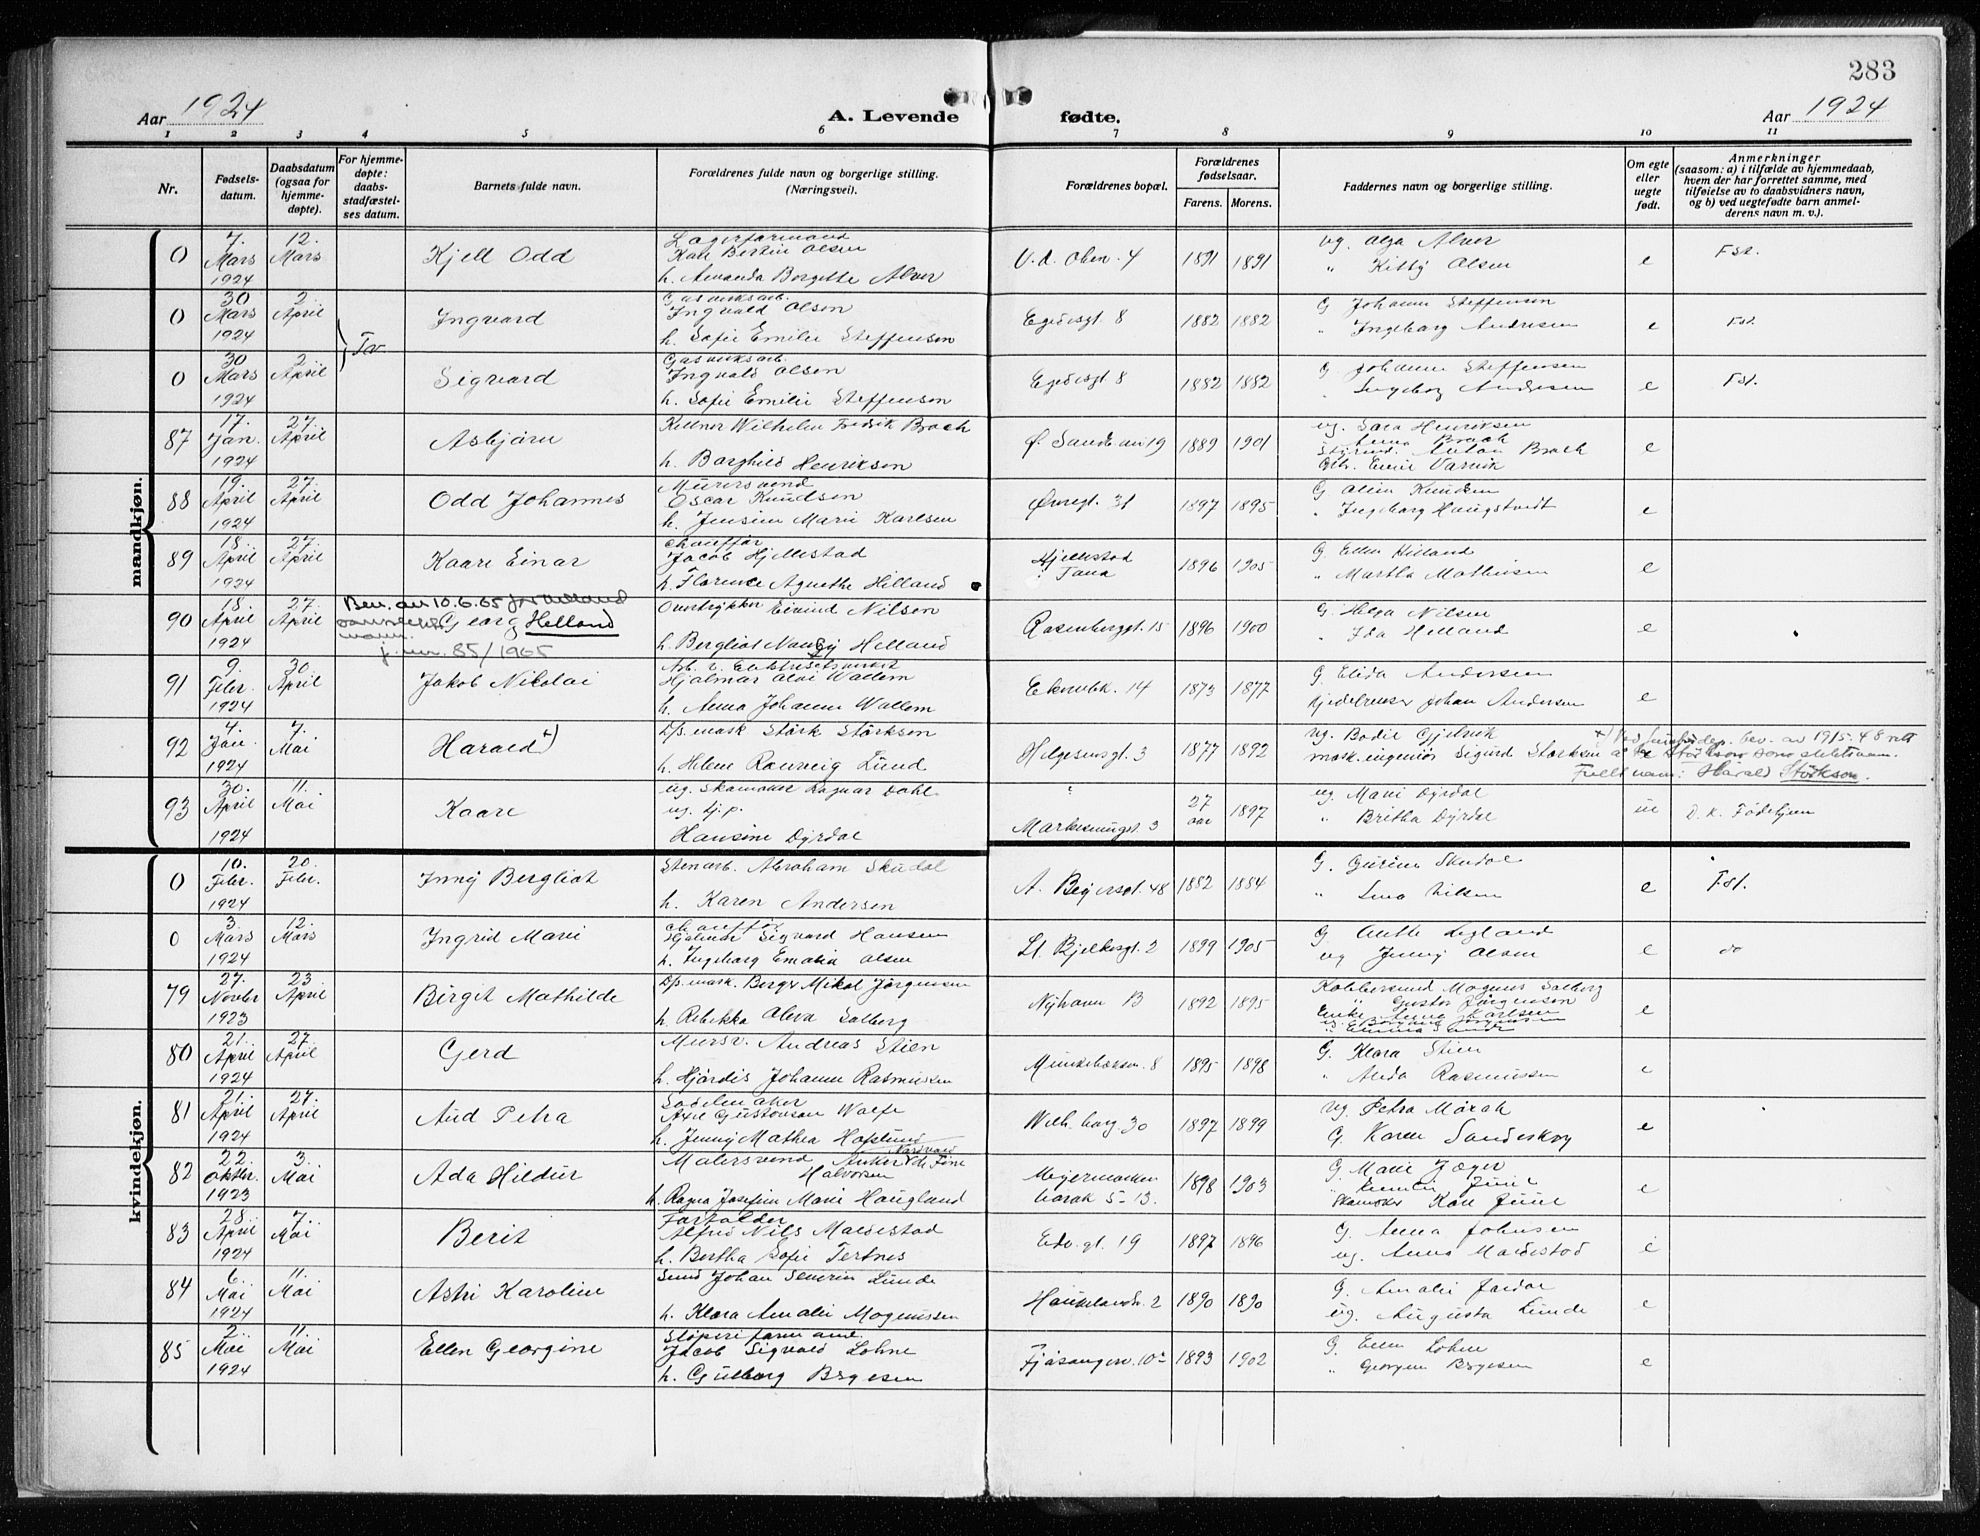 283
Aar 1924
A. Levende
fødte.
Aar 1924
1 2 3 4 5 6 7 8 9 10 11
Nr.
Fødsels-
datum.
Daabsdatum
(ogsaa for
hjemme-
døpte).
For hjemme-
døpte:
daabs-
stadfæstel-
ses datum.
Barnets fulde navn.
Forældrenes fulde navn og borgerlige stilling.
(Næringsvei).
Forældrenes bopæl.
Forældrenes
fødselsaar.
Farens. Morens.
Faddernes navn og borgerlige stilling.
Om egte
eller
uegte
født.
Anmerkninger
(saasom: a) i tilfælde av hjemmedaab,
hvem der har forrettet samme, med
tilføielse av to daabsvidners navn,
og b) ved uegtefødte barn anmel-
derens navn m. v.).
mandkjøn.
0 7. Mars 1924 12. Mars Kjell Odd
Lagerformand
Karl Bertin Olsen
h. Amanda Bergitte Alver
V. d. Oben. 4 1891 1891
ug. Olga Alver
" Kitty Olsen
e Fst.
0 30 Mars 1924 2 April Ingvard
Gasverksarb.
Ingvald Olsen
h. Sofie Emilie Steffensen
Egedesgt 8 1882 1882
G Johanne Steffensen
" Ingeborg Andresen
e Fst.
Tv
0 30 Mars 1924 2 April Sigvard
Gasverksarb.
Ingvald Olsen
h. Sofie Emilie Steffensen
Egedesgt 8 1882 1882
G Johanne Steffensen
Ingeborg Andresen
e Fst.
87 17. Jan. 1924 27. April Asbjørn
Kellner Wilhelm Fredrik Brach
h. Borghild Henriksen
Ø. Sandv.vei 19 1889 1901
ug. Sara Henriksen
Anna Brach
Anton Brach
Emil
e
88 19. April 1924 27. April Odd Johannes
Murersvend
Oscar Knudsen
h. Jensine Marie Karlsen
Øvregt. 31 1897 1895
G Knudsen
" Ingeborg Haugstvedt
e
89 18. April 1924 27. April Kaare Einar
Chauffør
Jacob Hjellestad
h. Florence Agnethe Hilland
Hjellestad
Fana 1896 1905
G. Ellen Hilland
" Martha Mathisen
e
90 18. April 1924 27. April
Bev. av 10.6.65 for Helland
Georg Helland
navn.
j. nr. 85/1965
Overtrykker Eivind Nilsen
h. Bergliot Nancy Helland
Rosenberggt. 15 1896 1900
G. Helga Nilsen
" Ida Helland
e
91 9. Febr. 1924 30. April Jakob Nikolai
Arb. v. Elektrisetsverket
Hjalmar Olai Wallem
h. Anna Johanne Wallem
14 1873 1877
G. Elida Andersen
Johan Andersen
e
92 4. Jan. 1924 7. Mai Harald +)
Dps. mask Størk Størksen
h. Helene Rannveig Lund
Helgesensgt. 3 1877 1892
ug. Bodil Gjelsvik
mask. ingeniør Sigurd Størksen
e
+) Ved bev. av 1915.48 rett
Størkson som slektsnavn.
Fullt navn: Harald Størkson.
93 30. April 1924 11. Mai Kaare
ug. Skomaker Ragnar Dahl
ug. tj.p.
Hansine Dyrdal
3 27 aar 1897
ug Marie Dyrdal
" Britha Dyrdal
ue D. K. Fødehjem
kvindekjøn.
0 10. Febr. 1924 20. Febr. Inny Bergliot
Stenarb. Abraham Skudal
h. Karen Andersen
A. Beyersgt. 48 1882 1884
G. Gurine Skudal
" Lina Nilsen
e Fst.
0 3. Mars 1924 12. Mars Ingrid Marie
Chauffør
Hjalmar Sigvard Hansen
h. Ingeborg Emalia Olsen
Lt. Bjelkesgt. 2 1899 1905
G Anette Lygland
ug Jenny Olsen
e do
79 27. Novbr 1923 23 April Birgit Mathilde
Dps. mask. Berge Mikal Jørgensen
h. Rebekka Oleva Solberg
Nyhavn B 1892 1895
Magnus Solberg
" Gustav Jørgensen
Enke Anna Karlsen
e
80 21. April 1924 27. April Gerd
Mursv. Andreas Stien
h. Hjørdis Johanne Rasmussen
Munkebotten 8 1895 1898
G. Klara Stien
" Anda Rasmussen
e
81 21. April 1924 27. April Aud Petra
Sadelmaker
Axel Gustavson Wolfe
h. Jenny Mathea Haglund
Wilh. barg 30 1897 1899
ug. Petra Mørch
G. Karen Sandeskog
e
82 22. Oktbr. 1923 3. Mai Ada Hildur
Malersvend
Halvorsen
h. Ragna Josefine Marie Haugland
Meyermarken
barak 5-13. 1898 1903
G. Marie Jæger
Juul
Skomaker Karl Juul
e
83 28. April 1924 7. Mai Berit
Forfalder
Alfred Nils Maldestad
h. Bertha Sofie Tertnes
Edv.gt. 19 1897 1896
G. Anna Johnsen
ug. Anna Maldestad
e
84 6. Mai 1924 11. Mai Astri Karoline
Smed Johan Severin Lunde
h. Klara Amalie Magnussen
Haukelandsv. 2 1890 1890
G. Amalie Jordal
ug. Augusta Lunde
e
85 2. Mai 1924 11. Mai Ellen Georgine
Jacob Sigvald Lohne
h. Gulborg Børgesen
Fjøsangerv. 10a 1893 1902
G. Ellen Lohne
" Georgine Børgesen
e